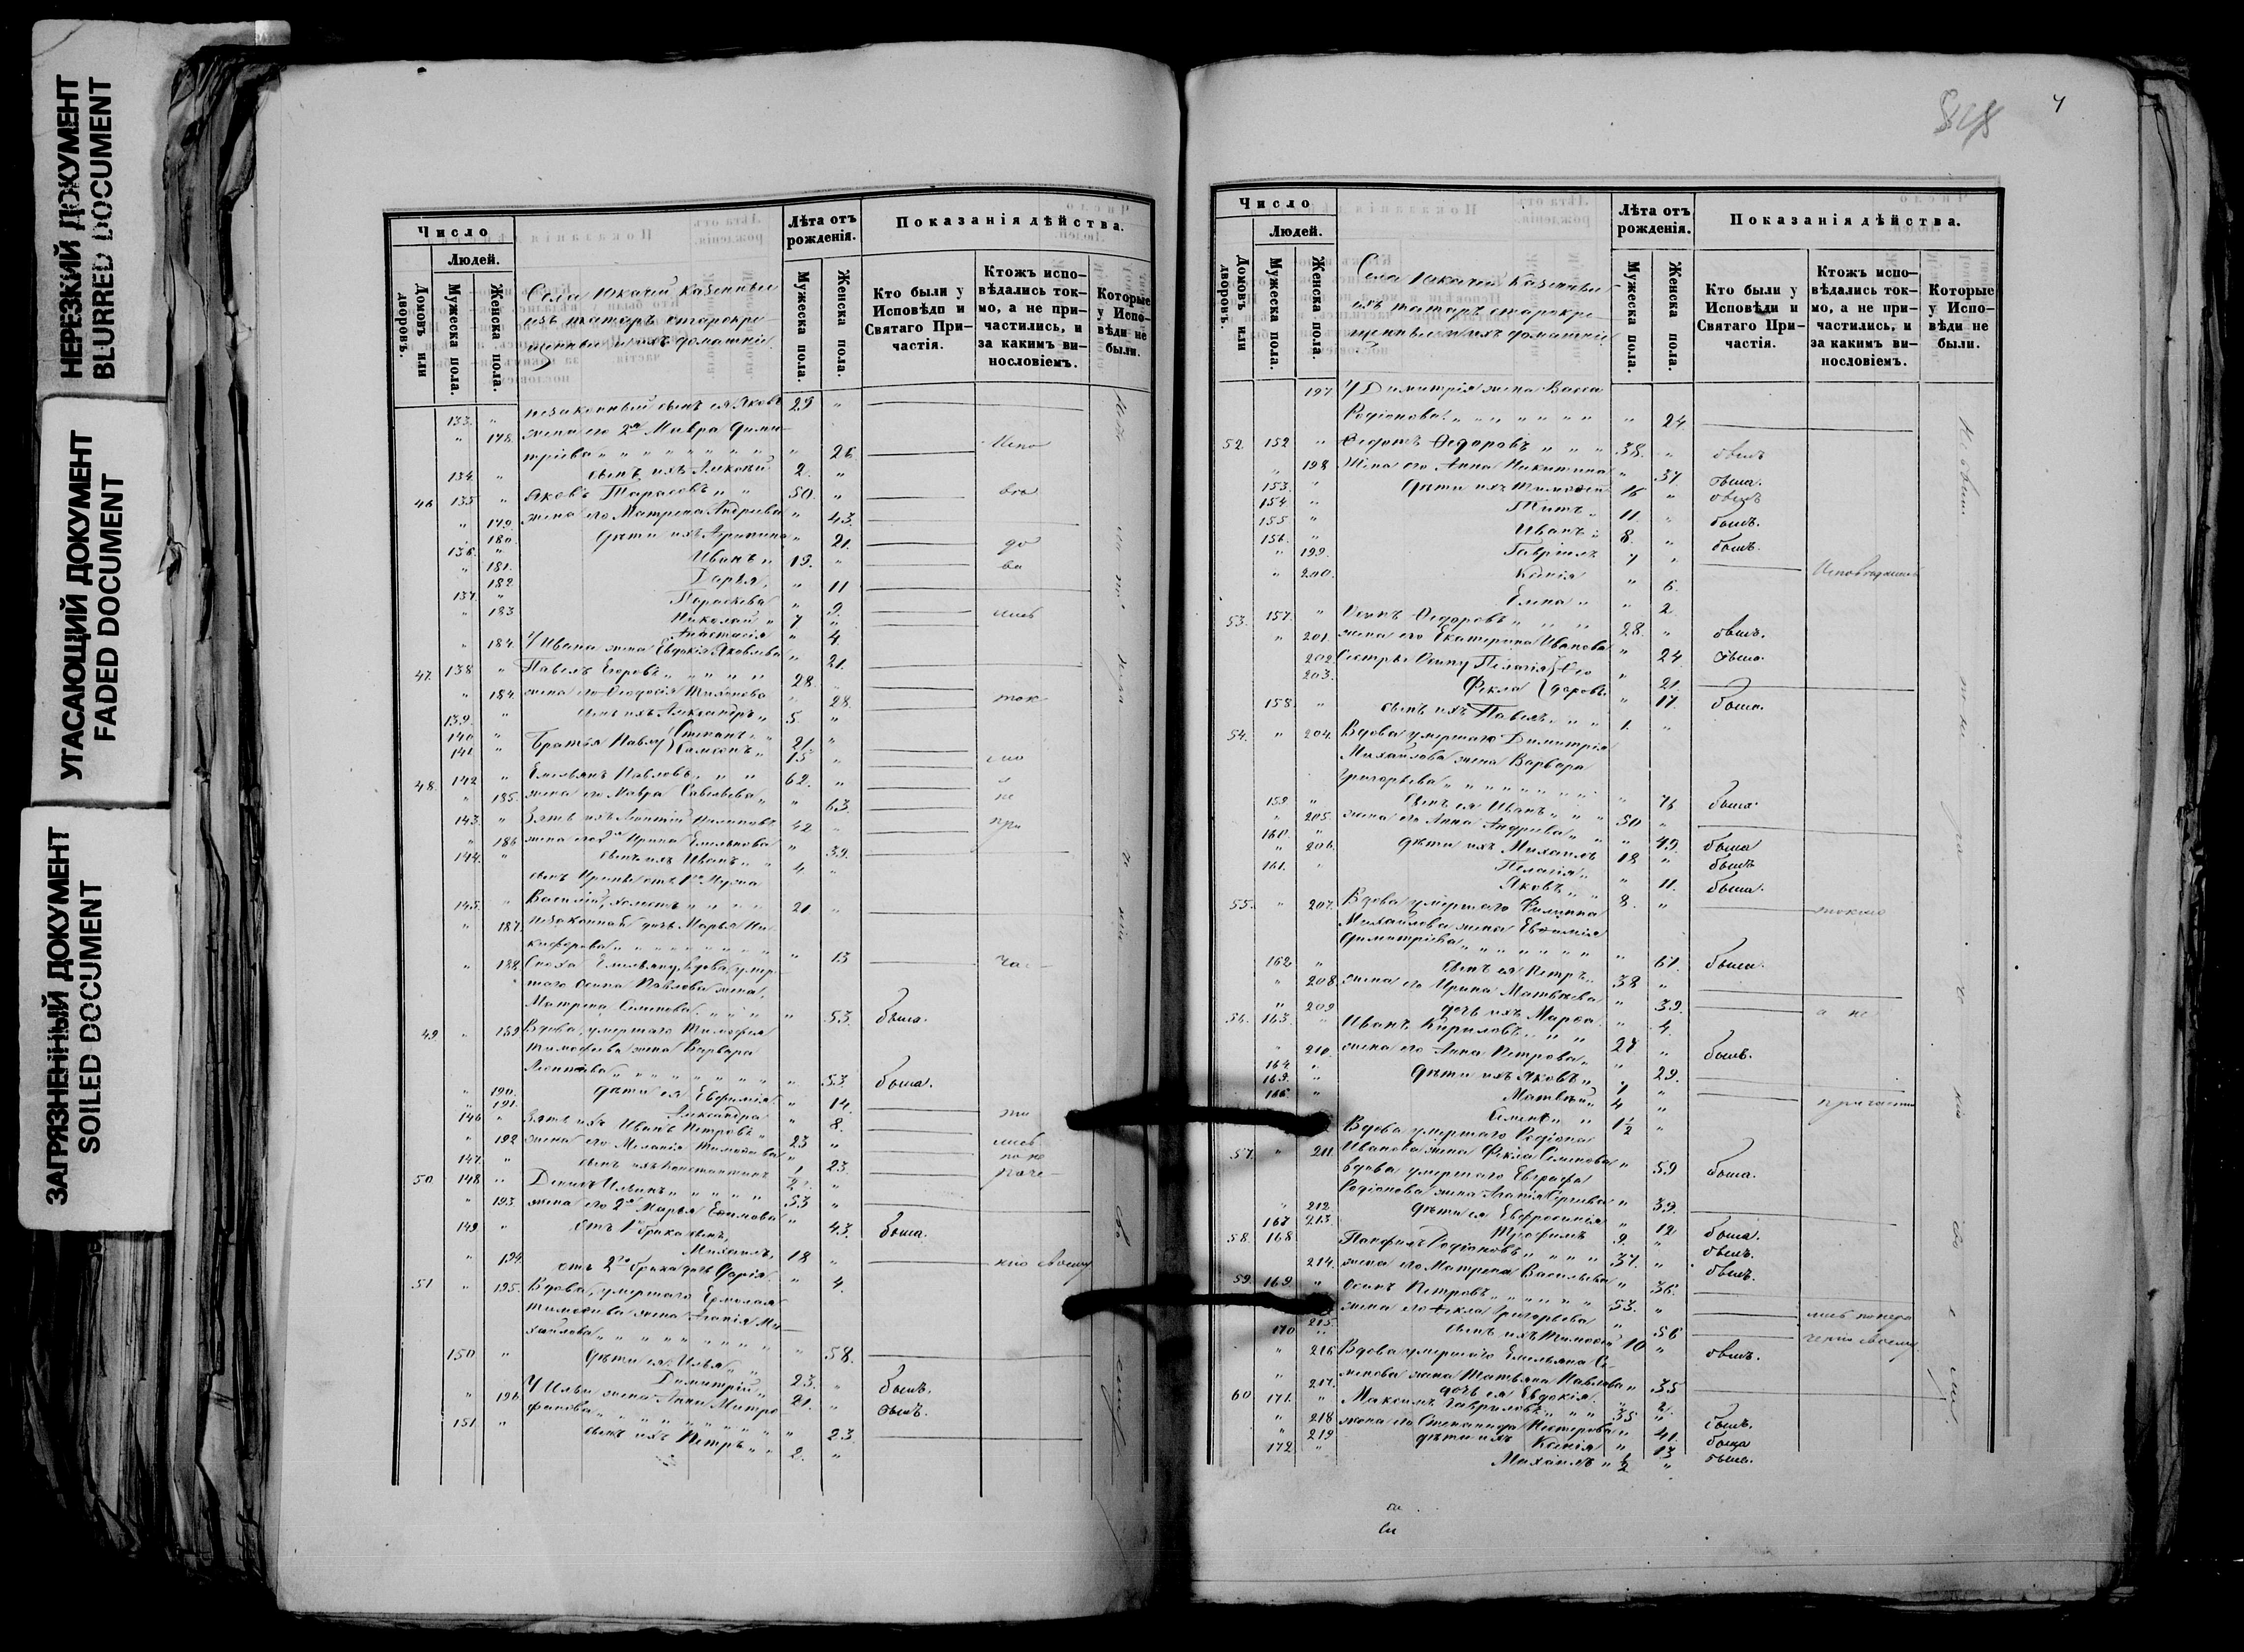 НЕРЕЗКИЙ ДОКУМЕНТ
BLURRED DOCUMENT
УГАСАЮЩИЙ ДОКУМЕНТ
FADED DOCUMENT
ЗАГРЯЗНЕННЫЙ ДОКУМЕНТ
SOILED DOCUMENT
Число
Людей.
Домовъ или дворовъ.
Мужеска пола.
Женска пола.
Села Юкачей казенные
изъ татаръ старокре-
щенные и ихъ домашніе.
Лѣта отъ рожденія.
Мужеска пола.
Женска пола.
Показанія дѣйства.
Кто были у Исповѣди и Святаго При-частія.
Ктожъ испо-вѣдались ток-мо, а не при-частились, и за какимъ ви-нословіемъ.
Которые у Испо-вѣди не были.
133. " незаконный сынъ ея Яковъ 29 "
" 178. жена его 2я Мавра Дими-
тріева " 26.
134. " сынъ ихъ Алексѣй 2. "
46 135 " Яковъ Тарасовъ 50. "
" 179. жена его Матрена Андреева " 43.
180. дѣти ихъ Агрипина " 21.
136. " Иванъ 19. "
" 181. Дарья " 11
182 Параскева " 9
137. " Николай 7 "
" 183 Анастасія " 4.
" 184. У Ивана жена Евдокія Яковлева " 21.
47. 138 " Павелъ Егоровъ 28. "
" 184. жена его Ѳеодосія Тихонова " 28.
139. " сынъ ихъ Александръ 5. "
140 " Братья Павлу Степанъ 21. "
141 " Самсонъ 15 "
48. 142 " Емельянъ Павловъ 62. "
" 185. жена его Мавра Савельева " 63.
143. " Зять ихъ Леонтій Филиповъ 42 "
" 186 жена его 2я Ирина Емельянова " 39.
144. " сынъ ихъ Иванъ 4 "
сынъ Ирины отъ 1го мужа
145. " Василій, холостъ 21 "
" 187. незаконная дочь Марья Ни-
кифорова " 13
" 188. Сноха Емельяну, вдова умер-
шаго Осипа Павлова жена,
Матрена Семенова " 53. была.
49. " 189 Вдова, умершаго Тимофея
Тимофеева жена Варвара
Леонтьева " 53. была.
" 190. дѣти ея Евфимія " 14.
" 191. Александра " 8.
146 " Зять ихъ Иванъ Петровъ 23 "
" 192 жена его Меланія Тимофеева " 23.
147. " сынъ ихъ Константинъ 1/2 "
50 148 " Денисъ Ильинъ 53 "
" 193. жена его 2я Марья Ефимова " 43. была.
149 " Отъ 1го брака сынъ,
Михаилъ 18 "
" 194. отъ 2го брака дочь Дарія " 4.
51 " 195. Вдова, умершаго Ермолая
Тимофеева жена Агапія Ми-
хайлова " 58.
150 " дѣти ея Илья 23. " былъ.
Димитрій 21. " былъ.
" 196 У Ильи жена Анна Митро-
фанова " 23.
151. " сынъ ихъ Петръ 2. "
7
Число
Людей.
Домовъ или дворовъ.
Мужеска пола.
Женска пола.
Села Юкачей Казенные
изъ татаръ старокре-
щенные и ихъ домашніе
Лѣта отъ рожденія.
Мужеска пола.
Женска пола.
Показанія дѣйства.
Кто были у Исповѣди и Святаго При-частія.
Ктожъ испо-вѣдались ток-мо, а не при-частились, и за какимъ ви-нословіемъ.
Которые у Испо-вѣди не были.
197 У Димитрія жена Васса
Родіонова " 24
52. 152 " Ѳедотъ Ѳедоровъ 38. " былъ
" 198 Жена его Анна Никитина " 37. была.
153. " дѣти ихъ Тимофей 16 " былъ
154. " Титъ 11. " былъ.
155. " Иванъ 8. " былъ.
156. " Гавріилъ 7 "
" 199. Ксенія " 6.
" 200. Елена " 2
53. 157. " Осипъ Ѳедоровъ 28. " былъ.
" 201. жена его Екатерина Иванова " 24 была.
202. Сестры Осипу Пелагія Ѳео- " 21.
203. Фекла доровы " 17. была.
158. " сынъ ихъ Павелъ 1. "
54. " 204. Вдова умершаго Димитрія
Михайлова жена Варвара
Григорьева " 76 была.
159. " сынъ ея Иванъ 50 "
" 205. жена его Анна Андреева " 49. была
160. " дѣти ихъ Михаилъ 18 " былъ
" 206. Пелагія " 11. была.
161. " Яковъ 8. "
55. " 207. Вдова умершаго Филиппа
Михайлова жена Евфимія
Димитріева " 61. была.
162. " сынъ ея Петръ 38 "
" 208. жена его Ирина Матвѣева " 39.
" 209 дочь ихъ Марѳа " 4.
56. 163. " Иванъ Кириловъ 27 " былъ.
" 210. жена его Анна Петрова " 29.
164 " дѣти ихъ Яковъ 7 "
165. " Матвѣй 4 "
166 " Семенъ 1 1/2 "
Вдова умершаго Родіона
57. " 211. Иванова жена Фекла Семенова " 59 была.
вдова умершаго Евграфа
Родіонова жена Агапія Сергеева " 39.
" 212 дѣти ея Евфросинія " 12 была.
58. 168 Панфилъ Родіоновъ 37. " былъ.
214. жена его Матрена Васильева " 36.
59. 169. " Осипъ Петровъ 53. "
215. жена его Ѳекла Григорьева " 56
170 " сынъ ихъ Тимофей 10 " былъ.
" 216 Вдова умершаго Емельяна Се-
менова жена Татьяна Павлова " 35
" 217. дочь ея Евдокія " 2.
60 171. " Максимъ Гавриловъ 35 " былъ.
" 218 жена его Степанида Нестерова " 41. была
" 219 дѣти ихъ Ксенія " 13 была.
172 " Михаилъ 1/2 "